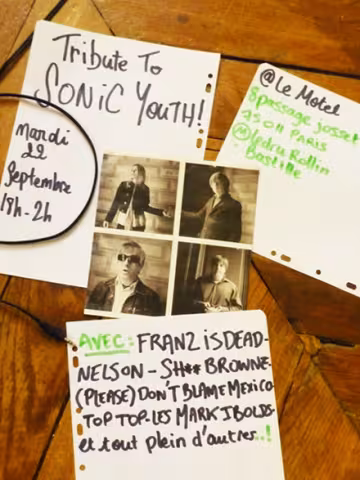 Tribute To
SONIC YOUTH!
Mardi
22
Septembre
18h-2h
@Le Motel
8 passage josset
75011 PARIS
Ⓜ Ledru Rollin
Bastille
AVEC: FRANZ iS DEAD-
NELSON - SH** BROWNE-
(PLEASE) DON'T BLAME MEXICO
TOP TOP-LES MARK IBOLDS
et tout plein d'autres..!